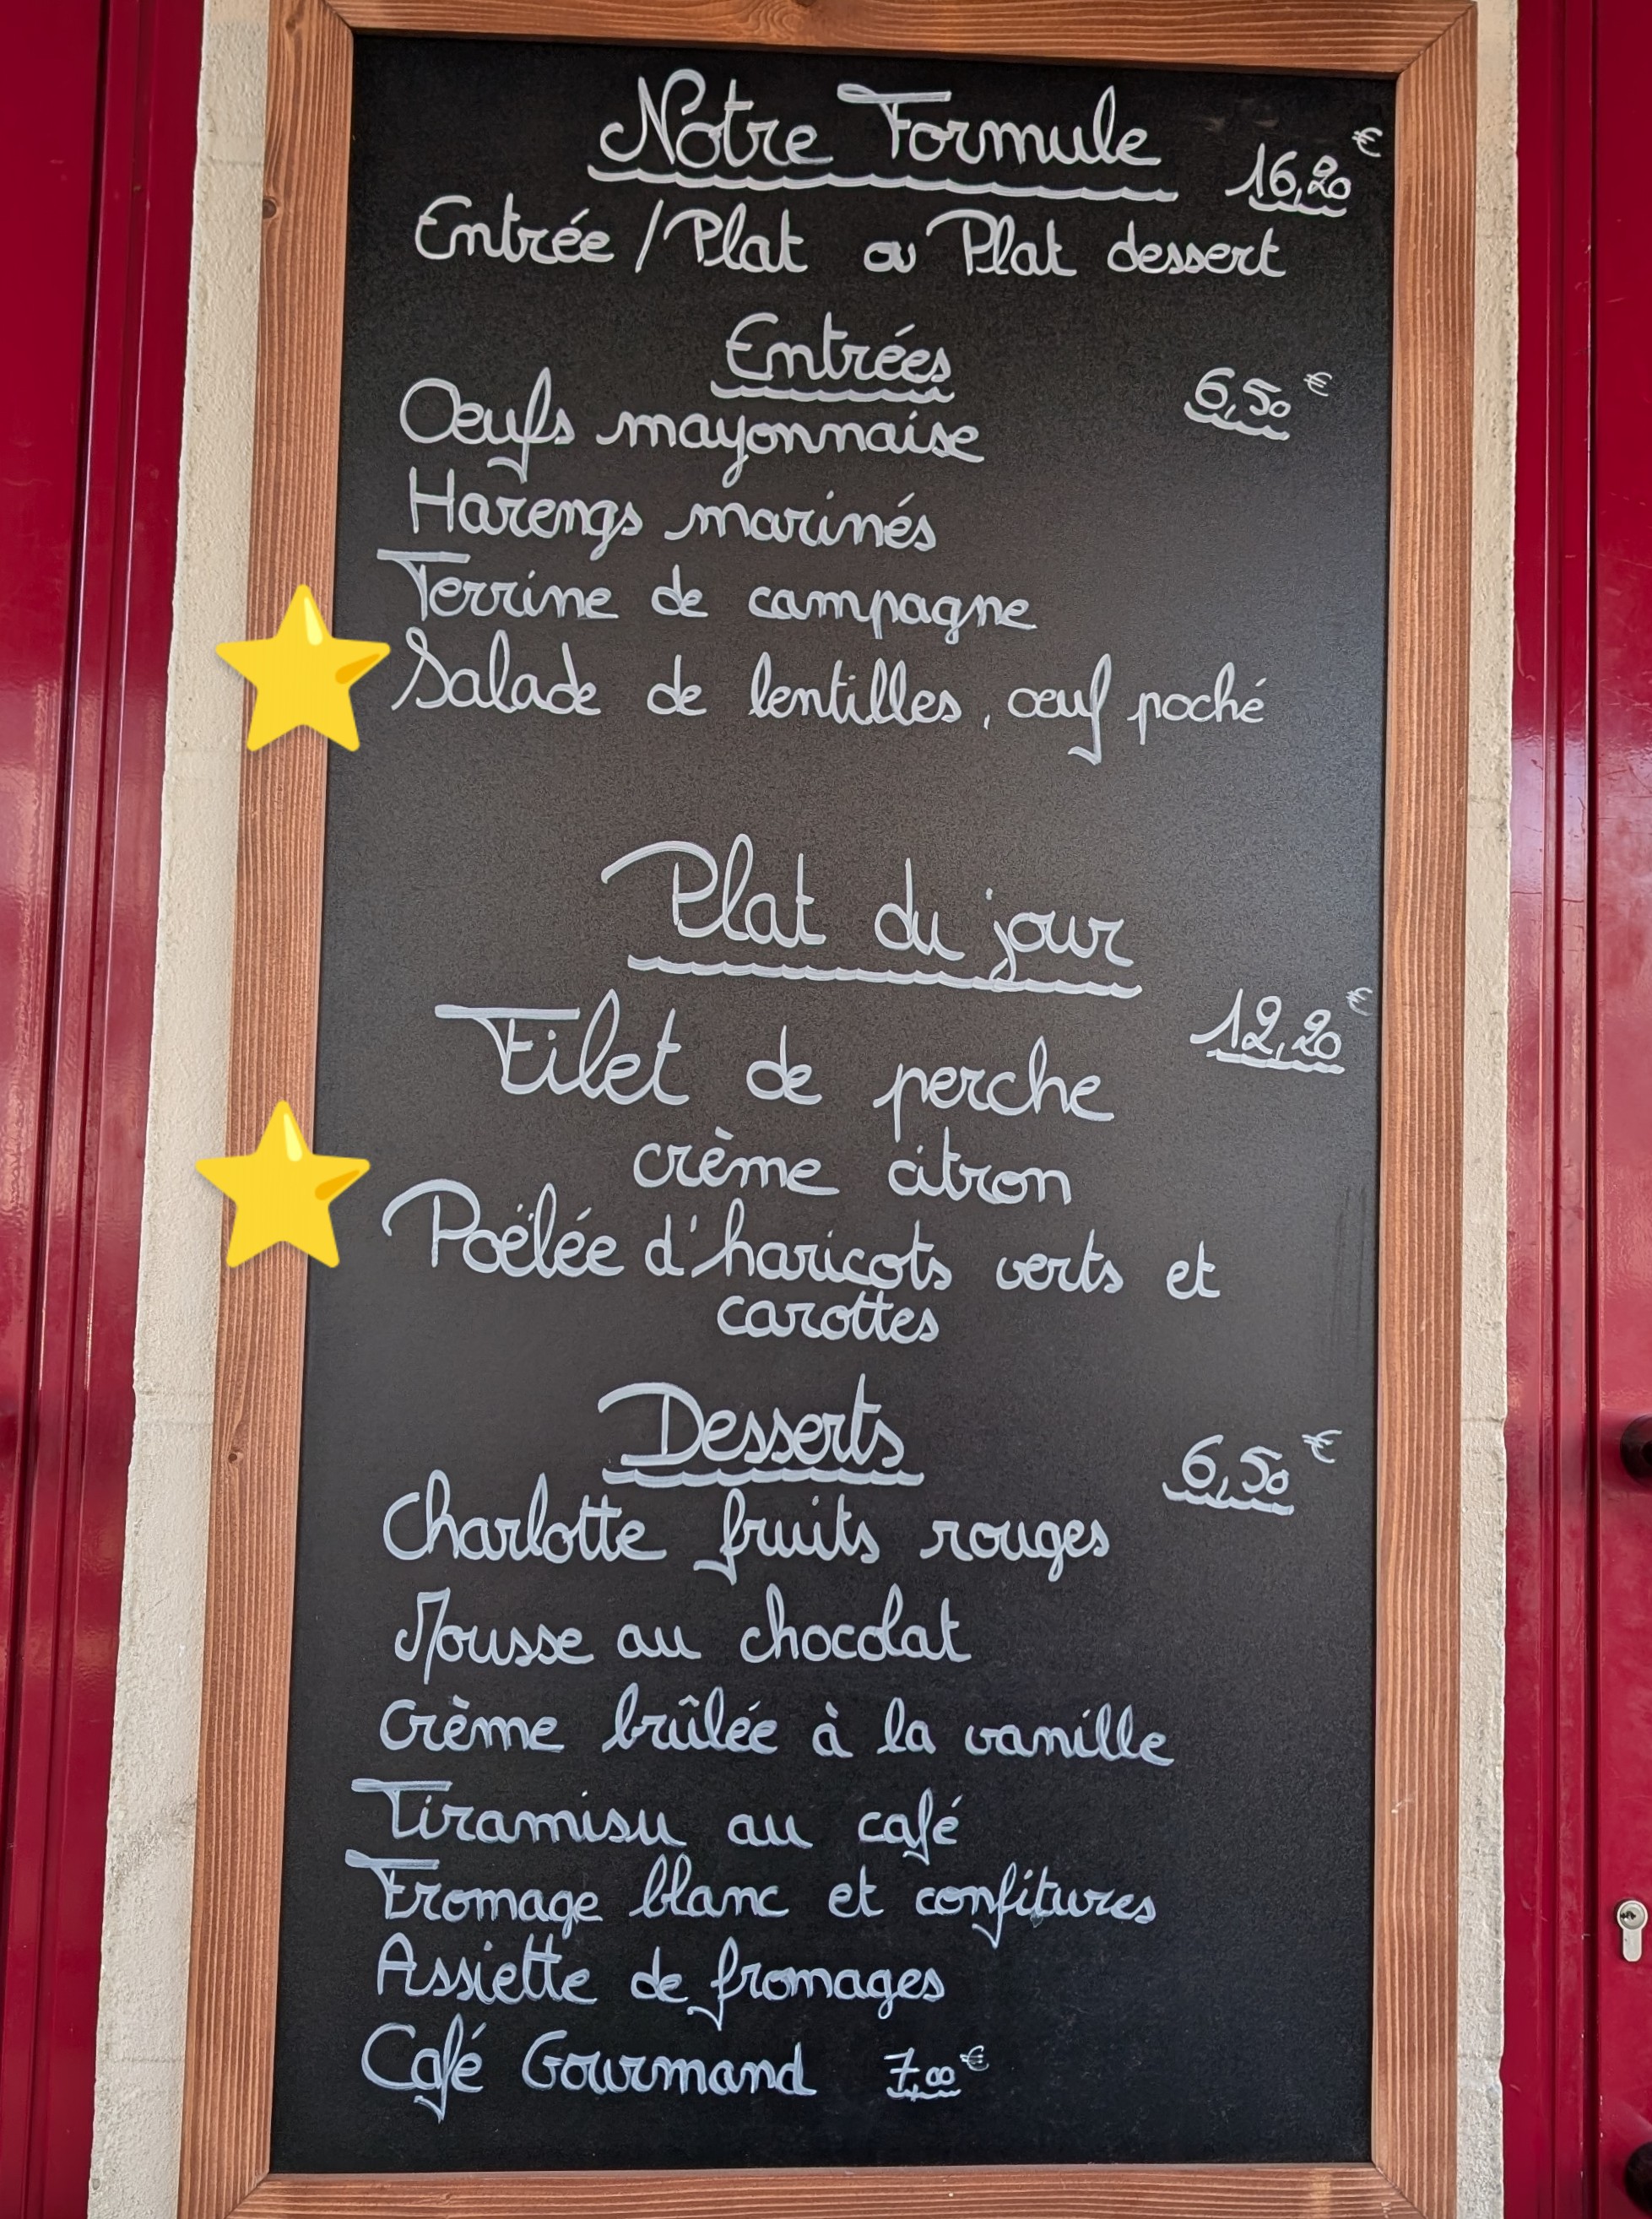 Notre Formule 16,20€
Entrée / Plat ou Plat dessert
Entrées 6,50€
Œufs mayonnaise
Harengs marinés
Terrine de campagne
Salade de lentilles, œuf poché
Plat du jour
12,20€
Filet de perche
crème citron
Poëlée d'haricots verts et
carottes
Desserts 6,50€
Charlotte fruits rouges
Mousse au chocolat
Crème brûlée à la vanille
Tiramisu au café
Fromage blanc et confitures
Assiette de fromages
Café Gourmand 7,00€